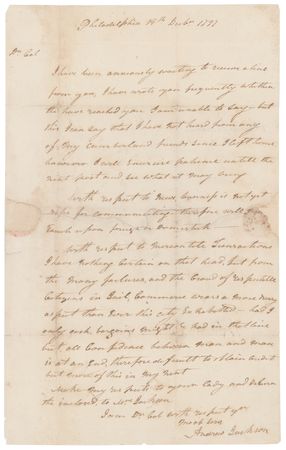 Philadelphia 18th Decbr 1797
Dr Col
I have been anxiously waiting to receive a line
from you, I have wrote you frequently whether
the have reached you I am unable to say but
this I can say that I have not heard from any
of my Cumberland friends since I left home
however I will Exercise patience untill the
next post and see what it may bring
With respect to News, Europe is not yet
ripe for commenting therefore will not
touch upon foreign or Domestick
With respect to Mercantile Transactions
I have nothing Certain on that head, but from
the many failures, and the Crowd of respectable
Citizens in Jail, Commerce wears a more
aspect than ever this city Exhibited — had I
only cash bargains might be had in that line
but all Confidence between man and man
is at an End, therefore difficult to obtain credit
but more of this in my next
Make my respects to your Lady and deliver
the inclosed to Mrs Jackson
I am Dr Col with respect yr
most obt
Andrew Jackson